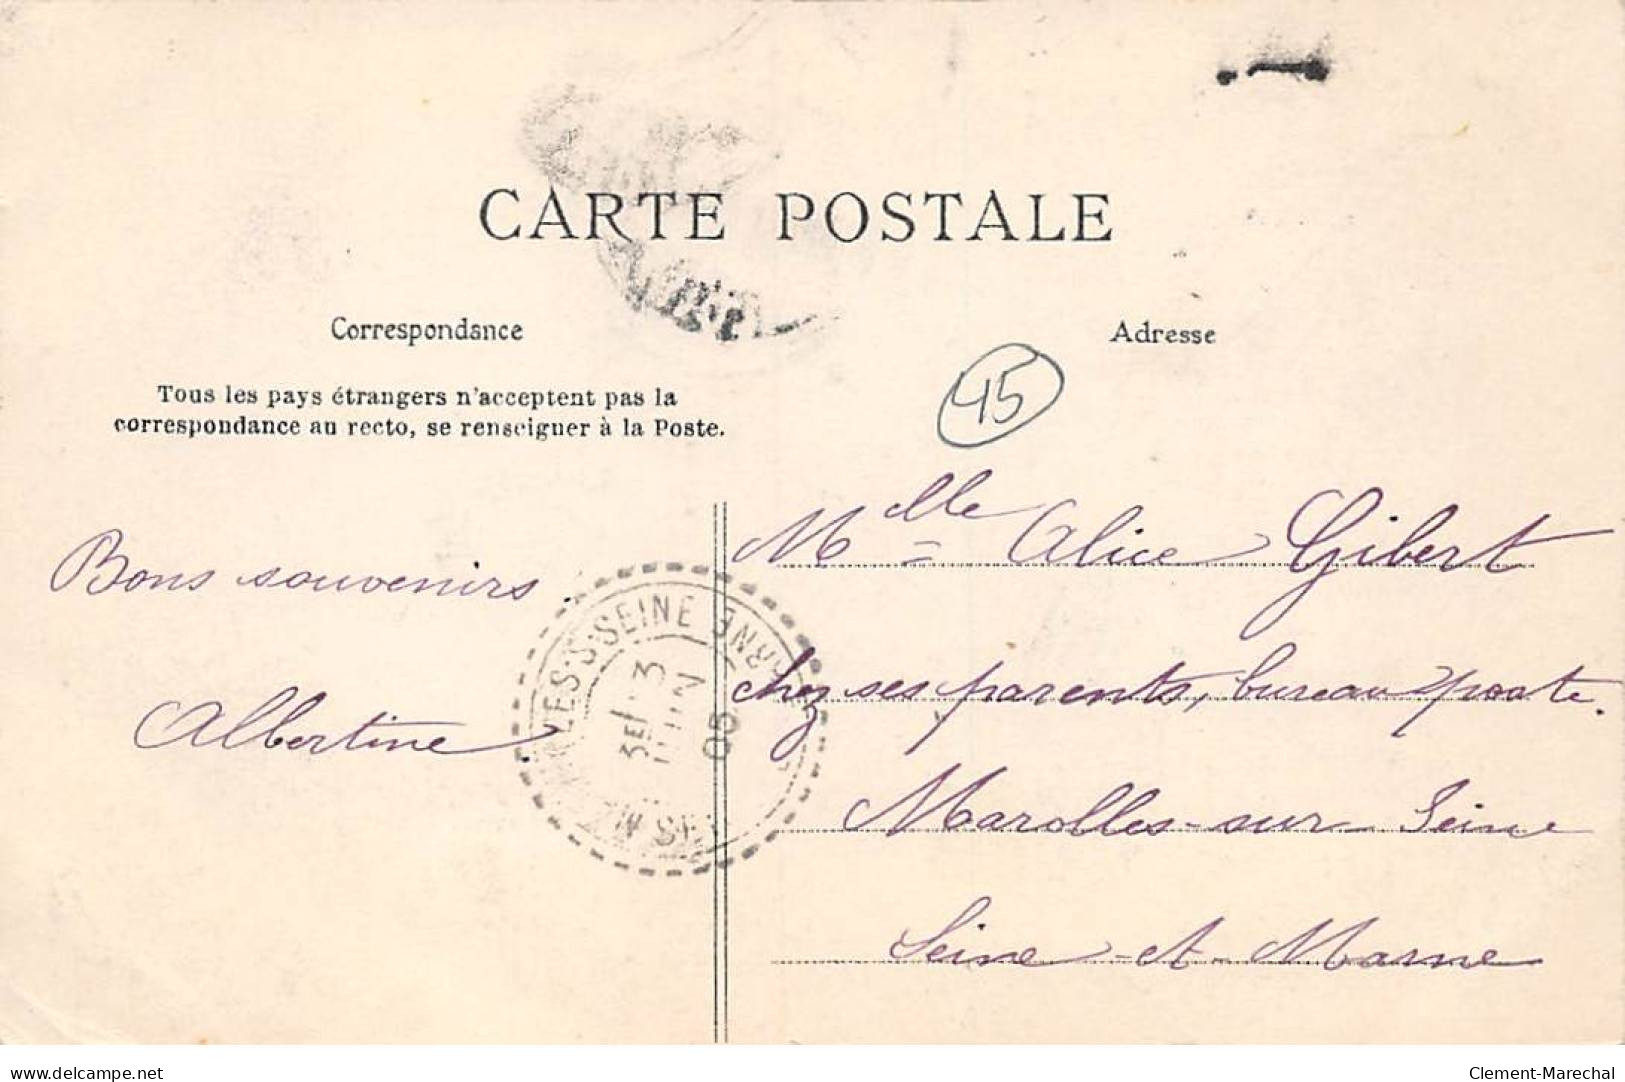 CARTE POSTALE
Correspondance
Adresse
Tous les pays étrangers n'acceptent pas la
correspondance au recto, se renseigner à la Poste.
45
Bons souvenirs.
Albertine
Mlle Alice Gibert
chez ses parents, bureau poste.
Marolles-sur-Seine
Seine-et-Marne
LES-S-SEINE
3E 3
JUIN
05
www.delcampe.net
Clement-Marechal